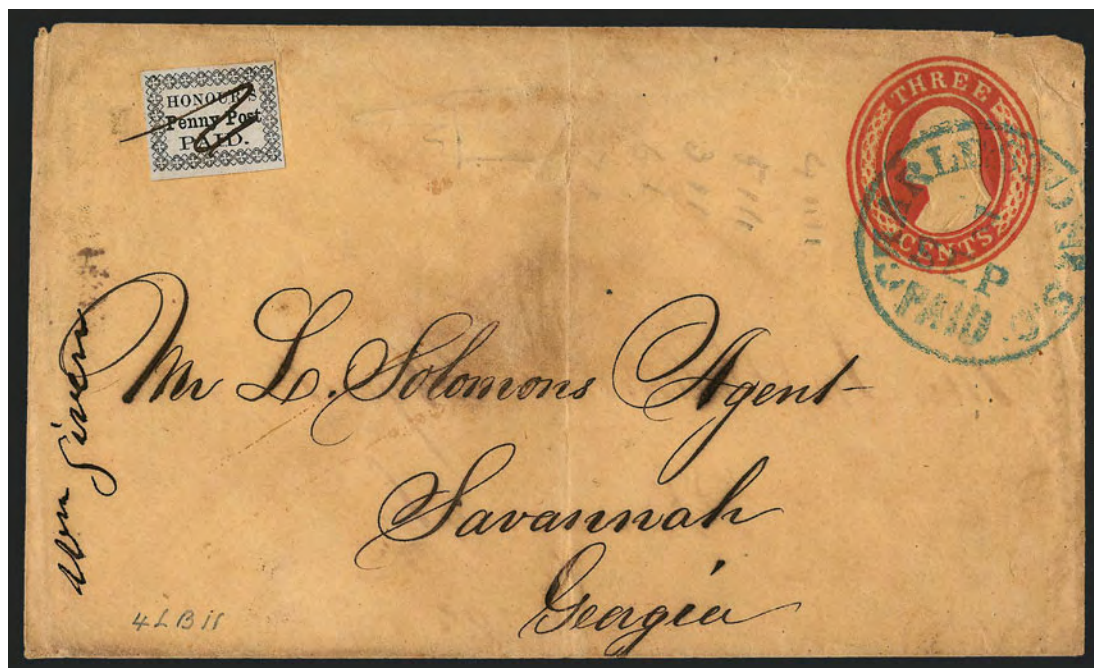 HONOUR'S
Penny Post
PAID.
THREE
CENTS
CHARLESTON S.C.
SEP
PAID
Mr L. Solomons Agent
Savannah
Georgia
4LB11